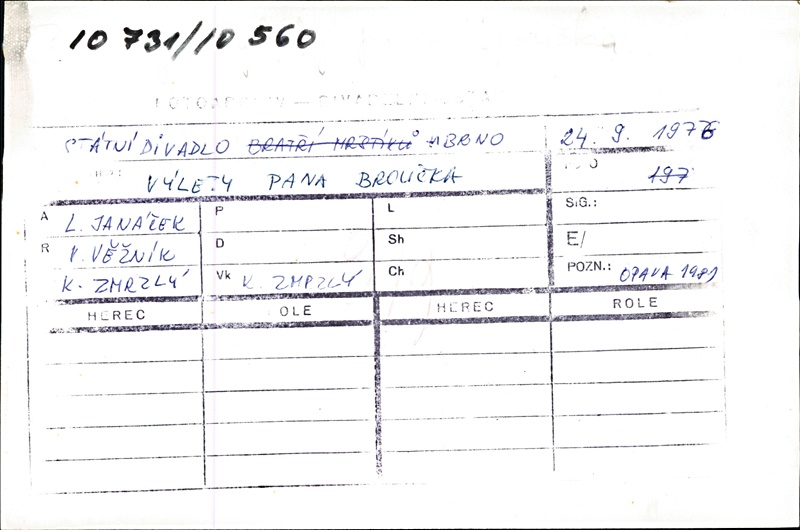 10 731/10 560
STÁTNÍ DIVADLO BRATŘÍ MRŠTÍKŮ BRNO 24. 9. 1976
VÝLETY PANA BROUČKA 197
A L. JANÁČEK P L SIG.:
R V. VĚŽNÍK D Sh E/
K. ZMRZLÝ Vk K. ZMRZLÝ Ch POZN.: OPAVA 1981
HEREC OLE HEREC ROLE